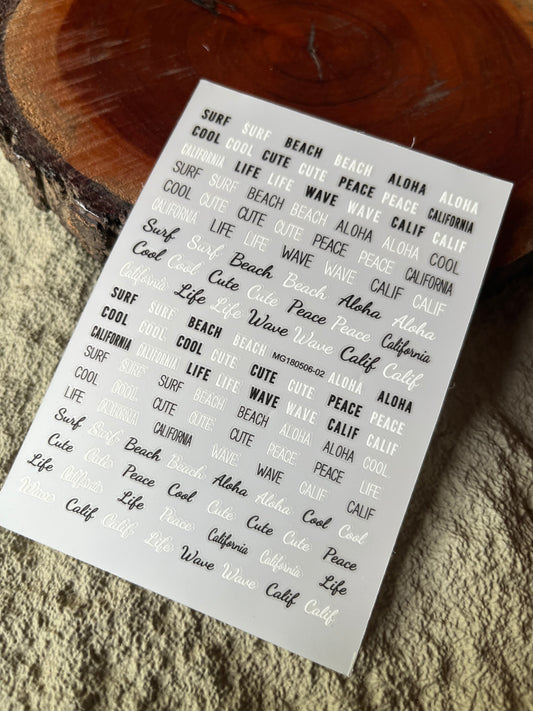 SURF SURF BEACH BEACH ALOHA ALOHA
COOL COOL CUTE CUTE PEACE PEACE CALIFORNIA
CALIFORNIA LIFE LIFE WAVE WAVE CALIF CALIF
SURF SURF BEACH BEACH ALOHA ALOHA COOL
COOL CUTE CUTE CUTE PEACE PEACE CALIFORNIA
CALIFORNIA LIFE LIFE WAVE WAVE CALIF CALIF
Surf Surf Beach Beach Aloha Aloha
Cool Cool Cute Cute Peace Peace California
California Life Life Wave Wave Calif Calif
SURF SURF BEACH BEACH MG180506-02 ALOHA ALOHA
COOL COOL COOL CUTE CUTE CUTE PEACE PEACE
CALIFORNIA CALIFORNIA LIFE LIFE WAVE WAVE CALIF CALIF
SURF SURF SURF BEACH BEACH ALOHA ALOHA COOL
COOL COOL CUTE CUTE CUTE PEACE PEACE LIFE
LIFE CALIFORNIA CALIFORNIA WAVE WAVE CALIF CALIF
Surf Surf Beach Beach Aloha Aloha Cool Cool
Cute Cute Peace Cool Cute Cute Cute Peace
Life California Life Peace California California Life
Wave Calif Calif Life Wave Wave Calif Calif